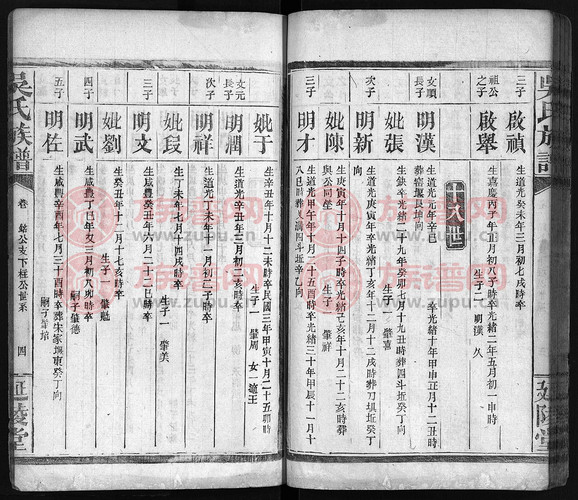 吳氏族譜
延陵堂
三子
啟禎
生道光癸未年三月初七戌時卒
祖公之子
啟舉
生嘉慶丙子年正月初八子時卒光緒二年五月初一申時
生子二 明漢 久
十八世
文順長子
明漢
生道光元年辛巳
卒光緒十年甲申正月十二丑時
妣張
生缺卒光緒二十九年癸卯七月十九丑時葬四斗坵癸丁向
生子一 肇喜
次子
明新
生道光庚寅年卒光緒丁亥年十二月十二戌時葬刀坝坵癸丁
向
妣陳
生庚寅年十月十四子時卒光緒己亥年十月二十二亥時葬
與公同塋
生子一 肇祥
三子
明才
生道光甲午年十月十三亥時卒光緒三十年甲辰十一月十
八巳時葬人滿四斗坵辛乙向
妣于
生辛丑年十月十二未時卒民國三年甲寅十月二十五卯時
生子一 肇周 女一 適王
文元長子
明潤
生道光辛丑年十二月初二亥時卒
次子
明祥
生道光丁未年十二月初二子時卒
妣段
生丁未年七月十四戌時卒
生子一 肇美
三子
明文
生咸豐癸丑年六月二十二巳時卒
妣劉
生癸丑年十二月十七亥時卒
生子一 肇艦
四子
明武
生咸豐丁巳年又三月初八卯時卒
嗣子肇德
五子
明佐
生咸豐辛酉年七月三十酉時卒葬宋家壩東癸丁向
吳氏族譜
卷
公支下桂公世系
四
延陵堂
族譜网
www.zupu.cn